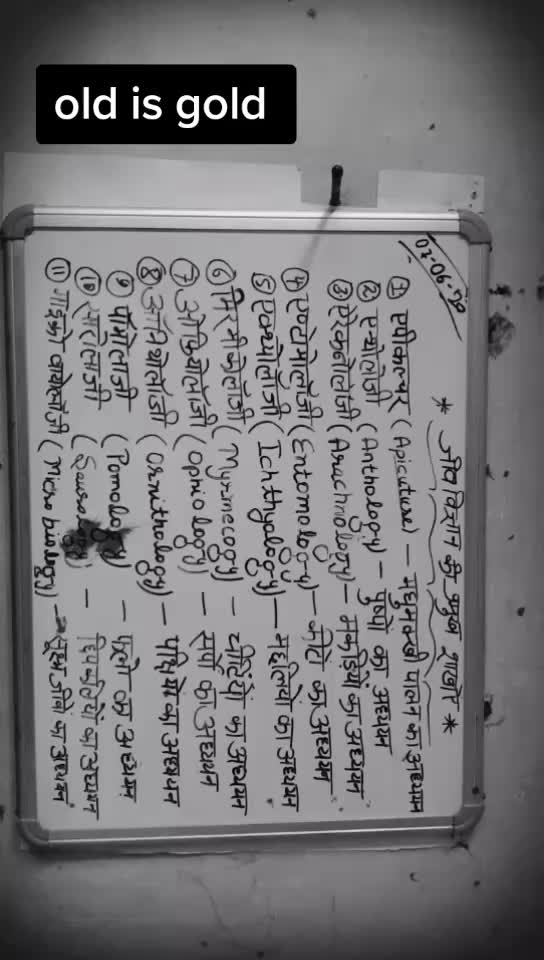 old is gold
* जीव विज्ञान की प्रमुख शाखाएँ *
① एपीकल्चर (Apicuture) — मधुमक्खी पालन का अध्ययन
② एन्थोलॉजी (Anthology) — पुष्पों का अध्ययन
③ ऐरेक्नोलॉजी (Arachnology) — मकड़ियों का अध्ययन
④ एण्टोमोलॉजी (Entomology) — कीटों का अध्ययन
⑤ इक्थ्योलॉजी (Ichthyalogy) — मछलियों का अध्ययन
⑥ मिरमीकोलॉजी (Myrmecogy) — चीटियों का अध्ययन
⑦ ओफियोलॉजी (Ophiology) — सर्प का अध्ययन
⑧ ऑर्निथोलॉजी (Ornithology) — पक्षियों का अध्ययन
⑨ पॉमोलॉजी (Pomology) — फलो का अध्ययन
⑩ सॉरोलॉजी (Saurology) — छिपकलियों का अध्ययन
⑪ माइक्रो बायोलॉजी (Micro biology) — सूक्ष्म जीवों का अध्ययन